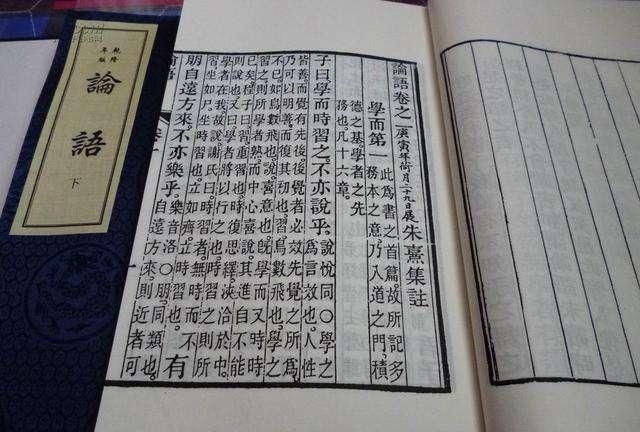 論語卷之一 庚寅年荷月二十九日展 朱熹集註
學而第一 此為書之首篇。故所記多
務本之意。乃入道之門。積
德之基。學者之先
務也。凡十六章。
子曰。學而時習之。不亦說乎。說悅同〇學之
為言效也。人性
皆善。而覺有先後。後覺者必效先覺之所為。
乃可以明善而復其初也。習。鳥數飛也。學之
不已。如鳥數飛也。說。喜意也。既學而又時時
習之。則所學者熟。而中心喜說。其進自不能
已矣。程子曰。習。重習也。時復思繹。浹洽於中。
則說也。又曰。學者將以行之也。時習之。則所
學者在我。故說。謝氏曰。時習者。無時而不
習。坐如尸。坐時習也。立如齊。立時習也。有
朋自遠方來。不亦樂乎。樂音洛〇朋。同類也。
自遠方來。則近者可
論語
乾隆
年版
論語
下